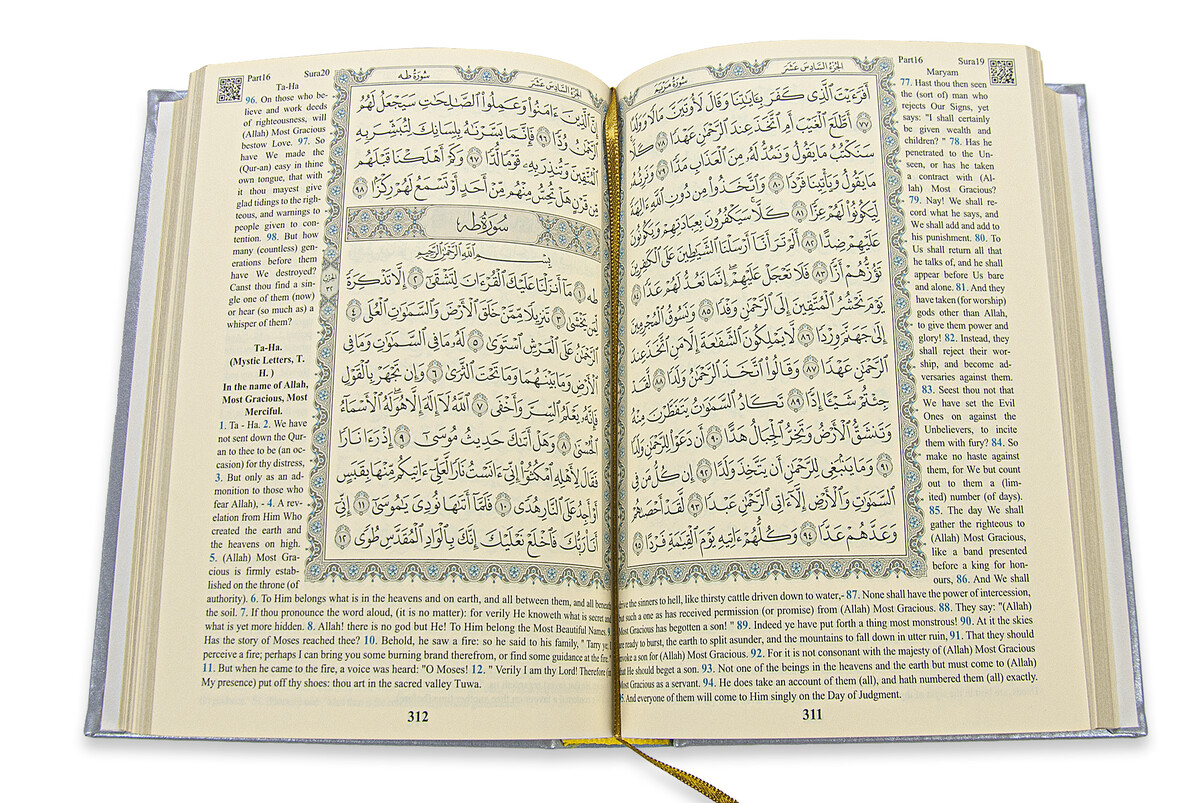 Part16 Sura19
Maryam
الجزء السادس عشر
سورة مريم
أَفَرَءَيْتَ ٱلَّذِى كَفَرَ بِـَٔايَٰتِنَا وَقَالَ لَأُوتَيَنَّ مَالًا وَوَلَدًا
٧٧ أَطَّلَعَ ٱلْغَيْبَ أَمِ ٱتَّخَذَ عِندَ ٱلرَّحْمَٰنِ عَهْدًا ٧٨ كَلَّا
سَنَكْتُبُ مَا يَقُولُ وَنَمُدُّ لَهُۥ مِنَ ٱلْعَذَابِ مَدًّا ٧٩ وَنَرِثُهُۥ
مَا يَقُولُ وَيَأْتِينَا فَرْدًا ٨٠ وَٱتَّخَذُوا۟ مِن دُونِ ٱللَّهِ ءَالِهَةً
لِّيَكُونُوا۟ لَهُمْ عِزًّا ٨١ كَلَّا سَيَكْفُرُونَ بِعِبَادَتِهِمْ وَيَكُونُونَ
عَلَيْهِمْ ضِدًّا ٨٢ أَلَمْ تَرَ أَنَّآ أَرْسَلْنَا ٱلشَّيَٰطِينَ عَلَى ٱلْكَٰفِرِينَ
تَؤُزُّهُمْ أَزًّا ٨٣ فَلَا تَعْجَلْ عَلَيْهِمْ إِنَّمَا نَعُدُّ لَهُمْ عَدًّا ٨٤
يَوْمَ نَحْشُرُ ٱلْمُتَّقِينَ إِلَى ٱلرَّحْمَٰنِ وَفْدًا ٨٥ وَنَسُوقُ ٱلْمُجْرِمِينَ
إِلَىٰ جَهَنَّمَ وِرْدًا ٨٦ لَّا يَمْلِكُونَ ٱلشَّفَٰعَةَ إِلَّا مَنِ ٱتَّخَذَ عِندَ
ٱلرَّحْمَٰنِ عَهْدًا ٨٧ وَقَالُوا۟ ٱتَّخَذَ ٱلرَّحْمَٰنُ وَلَدًا ٨٨ لَّقَدْ
جِئْتُمْ شَيْـًٔا إِدًّا ٨٩ تَكَادُ ٱلسَّمَٰوَٰتُ يَتَفَطَّرْنَ مِنْهُ
وَتَنشَقُّ ٱلْأَرْضُ وَتَخِرُّ ٱلْجِبَالُ هَدًّا ٩٠ أَن دَعَوْا۟ لِلرَّحْمَٰنِ وَلَدًا
٩١ وَمَا يَنۢبَغِى لِلرَّحْمَٰنِ أَن يَتَّخِذَ وَلَدًا ٩٢ إِن كُلُّ مَن فِى
ٱلسَّمَٰوَٰتِ وَٱلْأَرْضِ إِلَّآ ءَاتِى ٱلرَّحْمَٰنِ عَبْدًا ٩٣ لَّقَدْ أَحْصَىٰهُمْ
وَعَدَّهُمْ عَدًّا ٩٤ وَكُلُّهُمْ ءَاتِيهِ يَوْمَ ٱلْقِيَٰمَةِ فَرْدًا ٩٥
77. Hast thou then seen
the (sort of) man who
rejects Our Signs, yet
says: "I shall certainly
be given wealth and
children? " 78. Has he
penetrated to the Un-
seen, or has he taken
a contract with (Al-
lah) Most Gracious?
79. Nay! We shall re-
cord what he says, and
We shall add and add to
his punishment. 80. To
Us shall return all that
he talks of, and he shall
appear before Us bare
and alone. 81. And they
have taken (for worship)
gods other than Allah,
to give them power and
glory! 82. Instead, they
shall reject their wor-
ship, and become ad-
versaries against them.
83. Seest thou not that
We have set the Evil
Ones on against the
Unbelievers, to incite
them with fury? 84. So
make no haste against
them, for We but count
out to them a (lim-
ited) number (of days).
85. The day We shall
gather the righteous to
(Allah) Most Gracious,
like a band presented
before a king for hon-
ours, 86. And We shall
drive the sinners to hell, like thirsty cattle driven down to water,- 87. None shall have the power of intercession,
but such a one as has received permission (or promise) from (Allah) Most Gracious. 88. They say: "(Allah)
Most Gracious has begotten a son! " 89. Indeed ye have put forth a thing most monstrous! 90. At it the skies
are ready to burst, the earth to split asunder, and the mountains to fall down in utter ruin, 91. That they should
invoke a son for (Allah) Most Gracious. 92. For it is not consonant with the majesty of (Allah) Most Gracious
that He should beget a son. 93. Not one of the beings in the heavens and the earth but must come to (Allah)
Most Gracious as a servant. 94. He does take an account of them (all), and hath numbered them (all) exactly.
And everyone of them will come to Him singly on the Day of Judgment.
311
Part16 Sura20
Ta-Ha
الجزء السادس عشر
سورة طه
إِنَّ ٱلَّذِينَ ءَامَنُوا۟ وَعَمِلُوا۟ ٱلصَّٰلِحَٰتِ سَيَجْعَلُ لَهُمُ
ٱلرَّحْمَٰنُ وُدًّا ٩٦ فَإِنَّمَا يَسَّرْنَٰهُ بِلِسَانِكَ لِتُبَشِّرَ بِهِ
ٱلْمُتَّقِينَ وَتُنذِرَ بِهِۦ قَوْمًا لُّدًّا ٩٧ وَكَمْ أَهْلَكْنَا قَبْلَهُم
مِّن قَرْنٍ هَلْ تُحِسُّ مِنْهُم مِّنْ أَحَدٍ أَوْ تَسْمَعُ لَهُمْ رِكْزًۢا ٩٨
سُورَةُ طه
بِسْمِ ٱللَّهِ ٱلرَّحْمَٰنِ ٱلرَّحِيمِ
طه ١ مَآ أَنزَلْنَا عَلَيْكَ ٱلْقُرْءَانَ لِتَشْقَىٰٓ ٢ إِلَّا تَذْكِرَةً
لِّمَن يَخْشَىٰ ٣ تَنزِيلًا مِّمَّنْ خَلَقَ ٱلْأَرْضَ وَٱلسَّمَٰوَٰتِ ٱلْعُلَى ٤
ٱلرَّحْمَٰنُ عَلَى ٱلْعَرْشِ ٱسْتَوَىٰ ٥ لَهُۥ مَا فِى ٱلسَّمَٰوَٰتِ وَمَا فِى
ٱلْأَرْضِ وَمَا بَيْنَهُمَا وَمَا تَحْتَ ٱلثَّرَىٰ ٦ وَإِن تَجْهَرْ بِٱلْقَوْلِ
فَإِنَّهُۥ يَعْلَمُ ٱلسِّرَّ وَأَخْفَى ٧ ٱللَّهُ لَآ إِلَٰهَ إِلَّا هُوَ لَهُ ٱلْأَسْمَآءُ
ٱلْحُسْنَىٰ ٨ وَهَلْ أَتَىٰكَ حَدِيثُ مُوسَىٰٓ ٩ إِذْ رَءَا نَارًا
فَقَالَ لِأَهْلِهِ ٱمْكُثُوٓا۟ إِنِّىٓ ءَانَسْتُ نَارًا لَّعَلِّىٓ ءَاتِيكُم مِّنْهَا بِقَبَسٍ
أَوْ أَجِدُ عَلَى ٱلنَّارِ هُدًى ١٠ فَلَمَّآ أَتَىٰهَا نُودِىَ يَٰمُوسَىٰٓ ١١ إِنِّىٓ
أَنَا۠ رَبُّكَ فَٱخْلَعْ نَعْلَيْكَ إِنَّكَ بِٱلْوَادِ ٱلْمُقَدَّسِ طُوًى ١٢
96. On those who be-
lieve and work deeds
of righteousness, will
(Allah) Most Gracious
bestow Love. 97. So
have We made the
(Qur-an) easy in thine
own tongue, that with
it thou mayest give
glad tidings to the righ-
teous, and warnings to
people given to con-
tention. 98. But how
many (countless) gen-
erations before them
have We destroyed?
Canst thou find a sin-
gle one of them (now)
or hear (so much as) a
whisper of them?
Ta-Ha.
(Mystic Letters, T.
H. )
In the name of Allah,
Most Gracious, Most
Merciful.
1. Ta - Ha. 2. We have
not sent down the Qur-
an to thee to be (an oc-
casion) for thy distress,
3. But only as an ad-
monition to those who
fear Allah), - 4. A rev-
elation from Him Who
created the earth and
the heavens on high.
5. (Allah) Most Gra-
cious is firmly estab-
lished on the throne (of
authority). 6. To Him belongs what is in the heavens and on earth, and all between them, and all beneath
the soil. 7. If thou pronounce the word aloud, (it is no matter): for verily He knoweth what is secret and
what is yet more hidden. 8. Allah! there is no god but He! To Him belong the Most Beautiful Names. 9.
Has the story of Moses reached thee? 10. Behold, he saw a fire: so he said to his family, " Tarry ye; I
perceive a fire; perhaps I can bring you some burning brand therefrom, or find some guidance at the fire.
11. But when he came to the fire, a voice was heard: "O Moses! 12. " Verily I am thy Lord! Therefore (in
My presence) put off thy shoes: thou art in the sacred valley Tuwa.
312